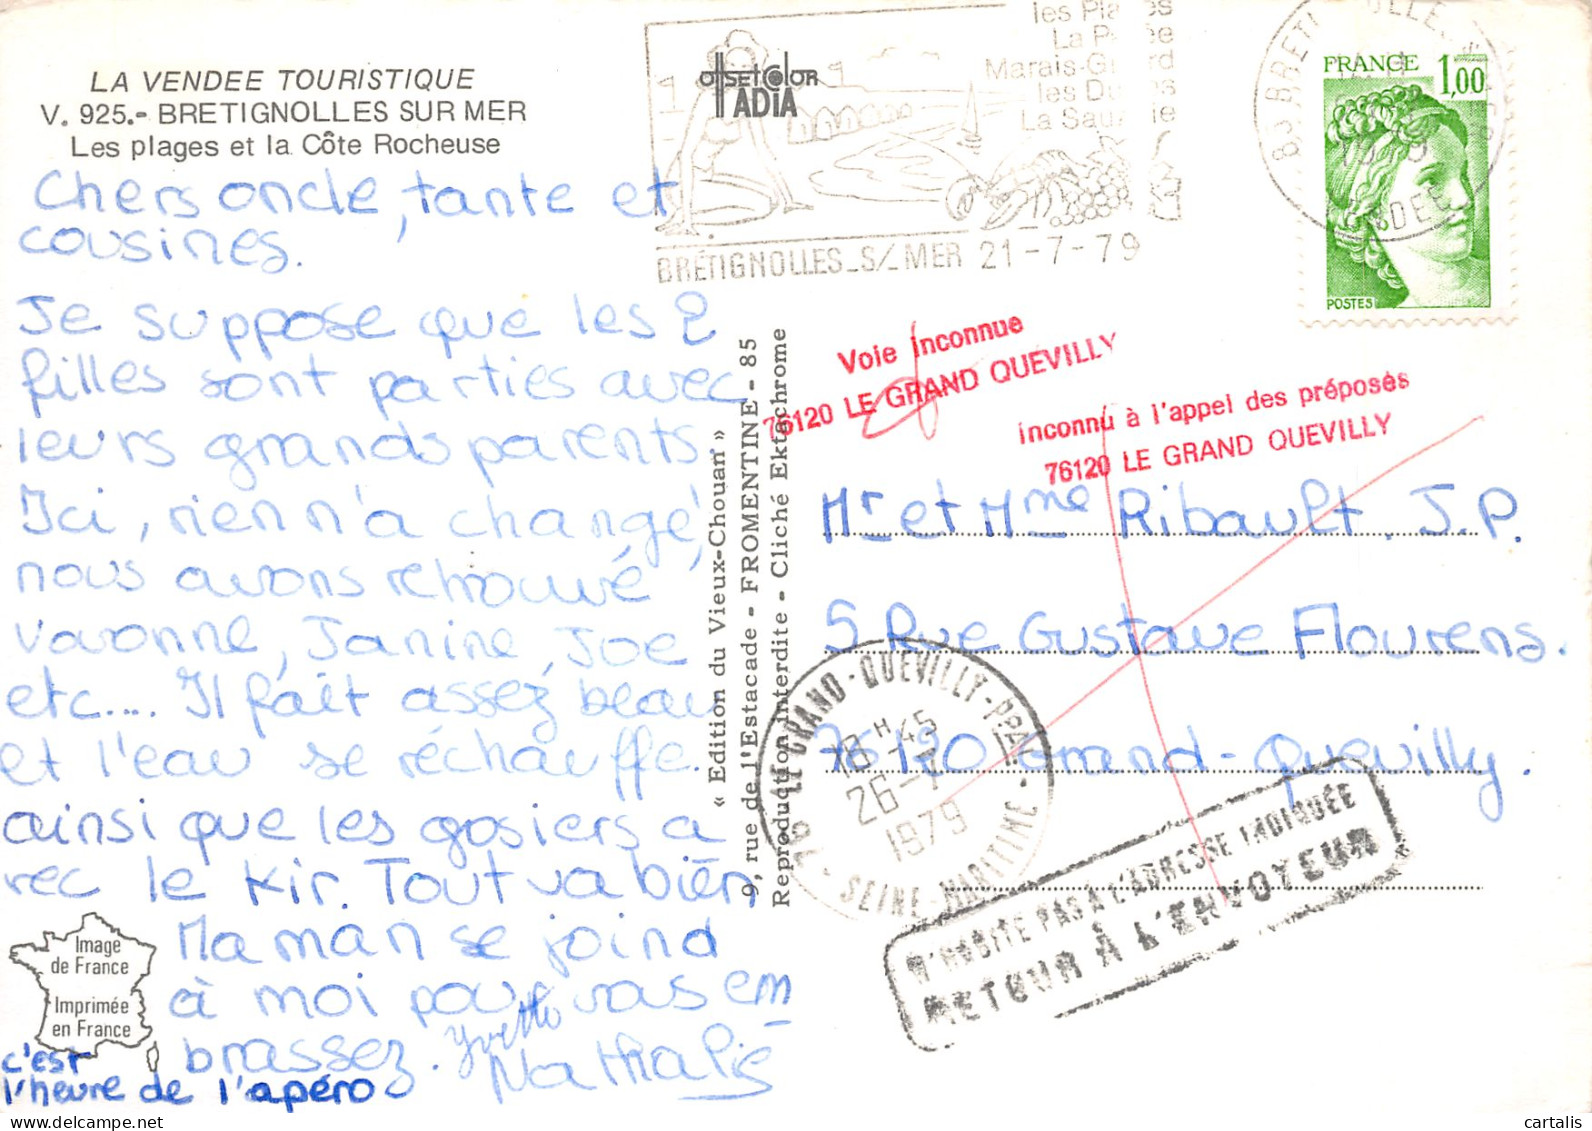 LA VENDEE TOURISTIQUE
V. 925.- BRETIGNOLLES SUR MER
Les plages et la Côte Rocheuse
Chers oncle, tante et
cousines.
Je suppose que les 2
filles sont parties avec
leurs grands parents
Ici, rien n'a changé,
nous avons retrouvé
Vavonne, Janine, Joe
etc.... Il fait assez beau
et l'eau se réchauffe.
ainsi que les gosiers a
vec le kir. Tout va bien
Maman se joind
à moi pour vous em
brassez. Yvette
Nathalie
c'est
l'heure de l'apéro
Image
de France
Imprimée
en France
offset color
IADIA
les Plages
La P
Marais Girard
les Dunes
La Sauzaie
BRÉTIGNOLLES_S/_MER 21-7-79
FRANCE 1,00
POSTES
« Edition du Vieux-Chouan »
9, rue de l'Estacade - FROMENTINE - 85
Reproduction interdite - Cliché Ektachrome
Voie inconnue
76120 LE GRAND QUEVILLY
inconnu à l'appel des préposés
76120 LE GRAND QUEVILLY
Mr et Mme Ribault. J.P.
5 Rue Gustave Flourens.
76120 Grand-Quevilly.
76 LE GRAND-QUEVILLY-PPAL -
18H-45
26-7
1979
SEINE-MARITIME
N'HABITE PAS A L'ADRESSE INDIQUÉE
RETOUR À L'ENVOYEUR
cartalis
delcampe.net